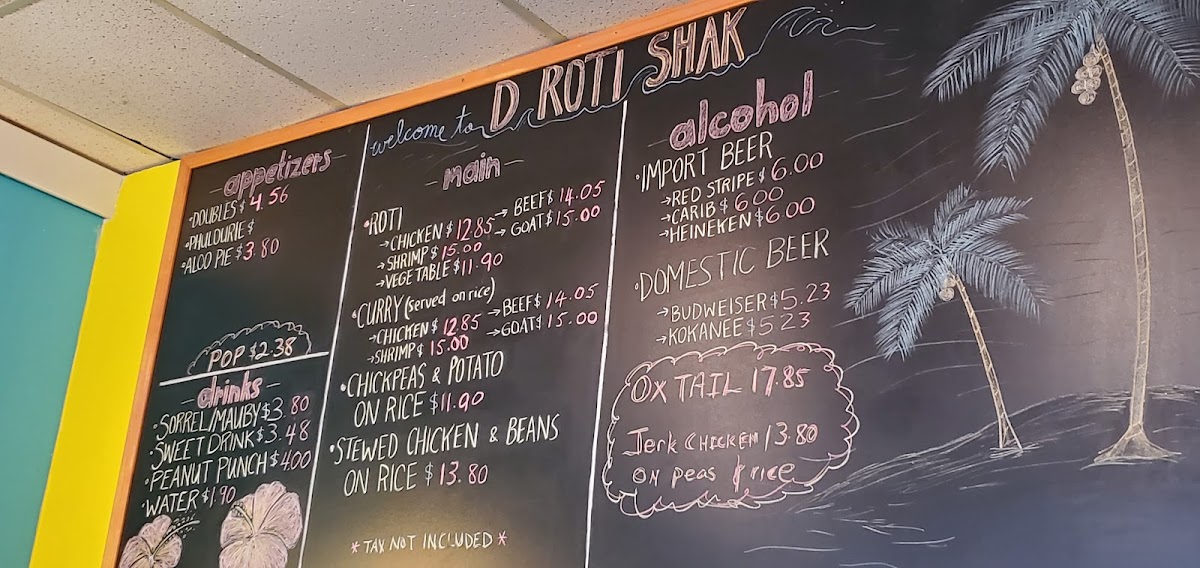 welcome to D ROTI SHAK
appetizers
• DOUBLES $ 4.56
• PHULDURIE $
• ALOO PIE $3.80
POP $2.38
drinks
• SORREL/MAUBY $3.80
• SWEET DRINK $3.48
• PEANUT PUNCH $4.00
• WATER $1.90
main
• ROTI
→ CHICKEN $ 12.85 → BEEF $ 14.05
→ SHRIMP $ 15.00 → GOAT $ 15.00
→ VEGETABLE $11.90
• CURRY (served on rice)
→ CHICKEN $ 12.85 → BEEF $ 14.05
→ SHRIMP $ 15.00 → GOAT $ 15.00
• CHICKPEAS & POTATO
ON RICE $11.90
• STEWED CHICKEN & BEANS
ON RICE $ 13.80
* TAX NOT INCLUDED *
alcohol
• IMPORT BEER
→ RED STRIPE $ 6.00
→ CARIB $ 6.00
→ HEINEKEN $6.00
• DOMESTIC BEER
→ BUDWEISER $5.23
→ KOKANEE $5.23
OX TAIL 17.85
Jerk CHICKEN 13.80
ON peas & rice